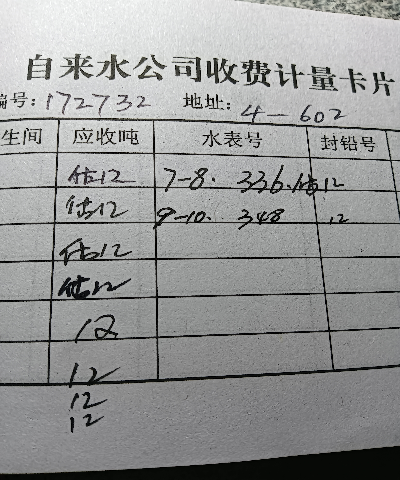 自来水公司收费计量卡片
编号:172732 地址:4-602
生间 应收吨 水表号 封铅号
估12 7-8. 336.估12
估12 9-10. 348 12
估12
估12
12
12
12
12